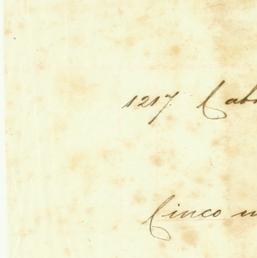 1217. Cab
Cinco